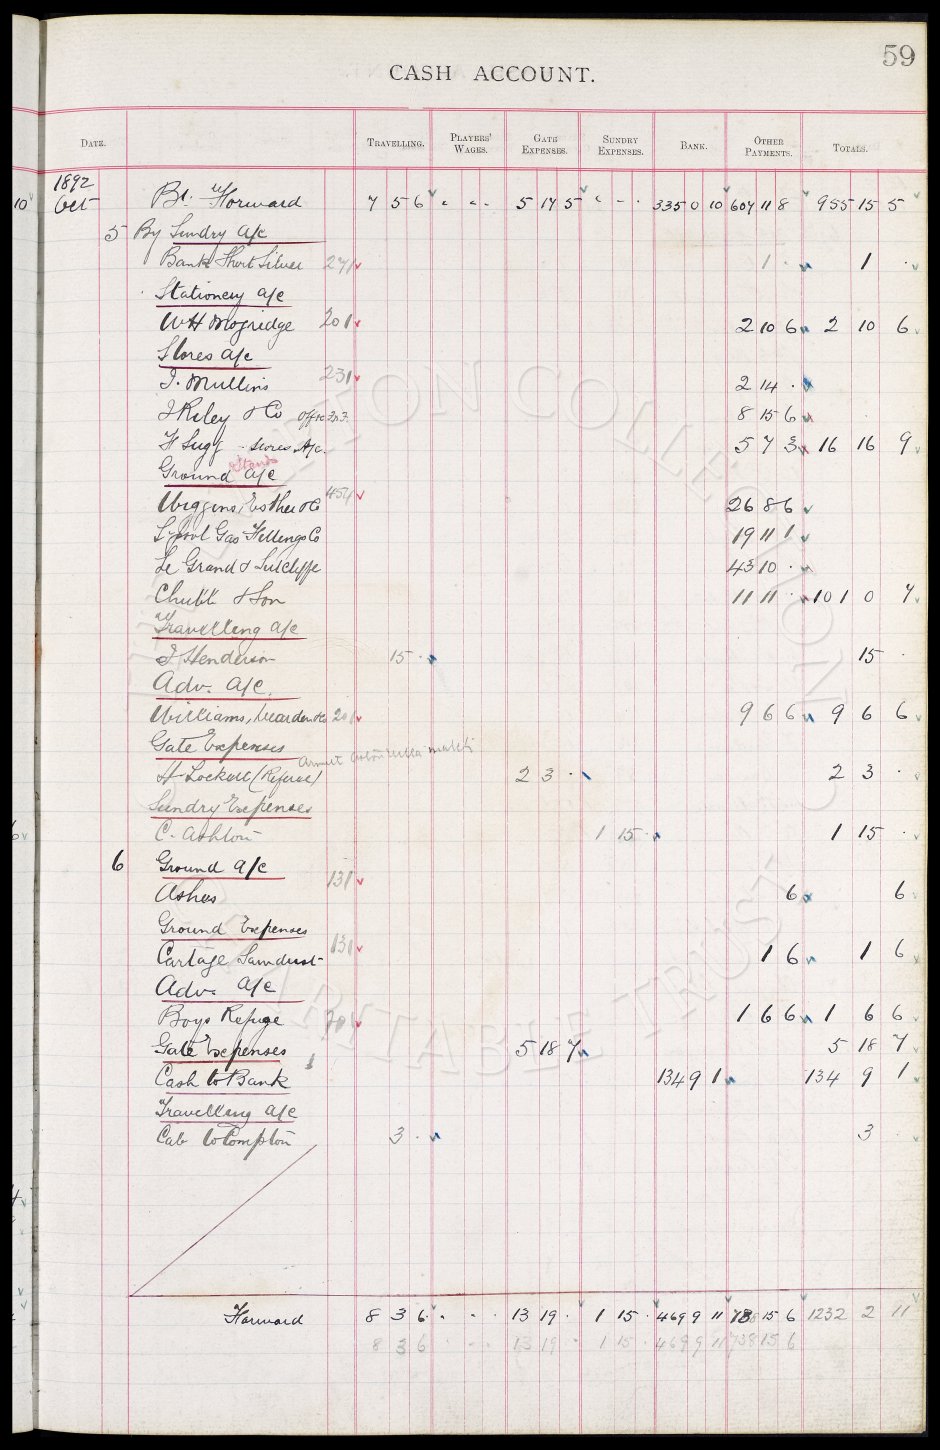 59
CASH ACCOUNT.
DATE. TRAVELLING. PLAYERS' WAGES. GATE EXPENSES. SUNDRY EXPENSES. BANK. OTHER PAYMENTS. TOTALS.
1892
Oct Bt. Forward 7 5 6 " " - 5 17 5 " - - 335 0 10 607 11 8 955 15 5
5 By Sundry a/c
Bank Short Silver 271 1 . 1 .
Stationery a/c
WH Mogridge 201 2 10 6 2 10 6
Stores a/c
J. Mullins 231 2 14 .
J Riley & Co 8 15 6
F Sugg - Stores A/c. 5 7 3 16 16 9
Stands
Ground a/c
Wiggins, Esther & Co 454 26 8 6
L'pool Gas Fittings Co 19 11 1
Le Grand & Sutcliffe 43 10 .
Chubb & Son 11 11 . 101 0 7
Travelling a/c
J. Henderson 15 . 15 .
Adv. a/c.
Williams, Wearden & Co 201 9 6 6 9 6 6
Gate Expenses
H Lockett (Refuse) 2 3 . 2 3 .
Sundry Expenses
C. Ashton 1 15 . 1 15 .
6 Ground a/c
Ashes 131 6 6
Ground Expenses
Cartage Sawdust 131 1 6 1 6
Adv. a/c
Boys Refuge 201 1 6 6 1 6 6
Gate Expenses 5 18 7 5 18 7
Cash to Bank 134 9 1 134 9 1
Travelling a/c
Cab to Compton 3 . 3 .
Forward 8 3 6 . . . 13 19 . 1 15 . 469 9 11 738 15 6 1232 2 11
8 3 6 - - 13 19 . 1 15 . 469 9 11 738 15 6
EVERTON COLLECTION
CHARITABLE TRUST